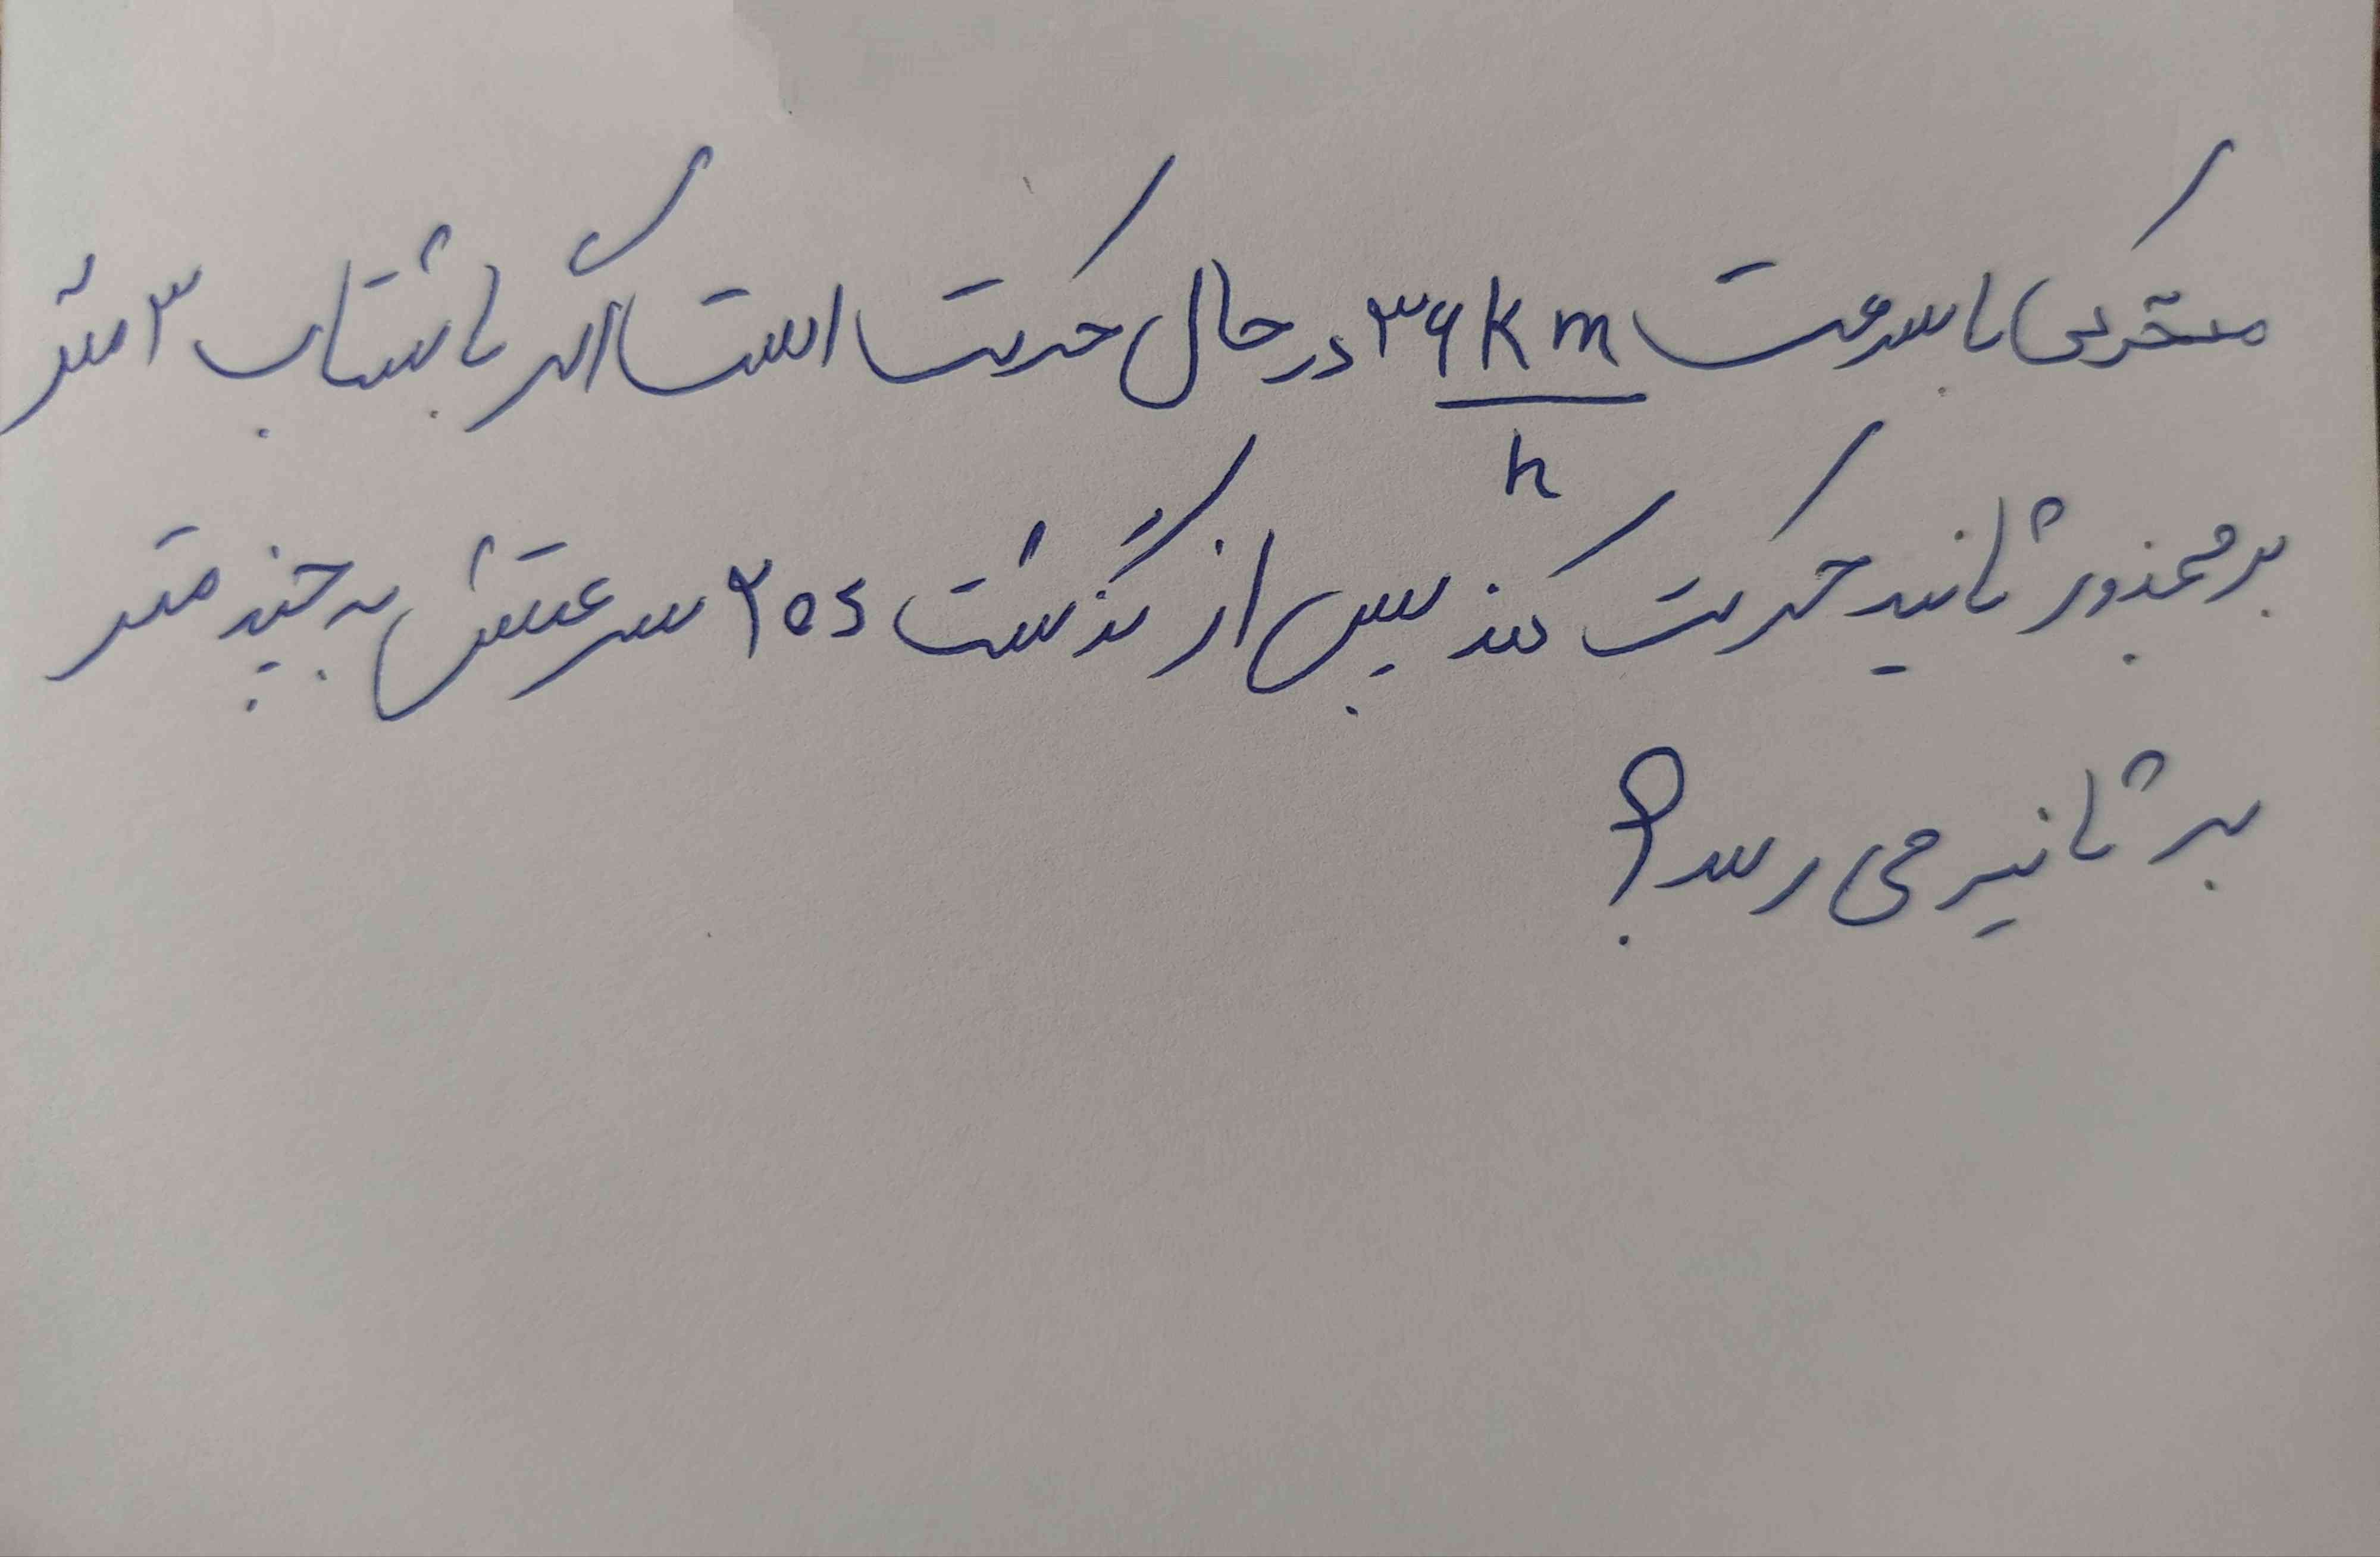 متحرکی با سرعت ۳۶ km/h در حال حرکت است اگر با شتاب ۳ متر
بر مجذور ثانیه حرکت کند پس از گذشت ۲۰s سرعتش به چند متر
بر ثانیه می رسد؟